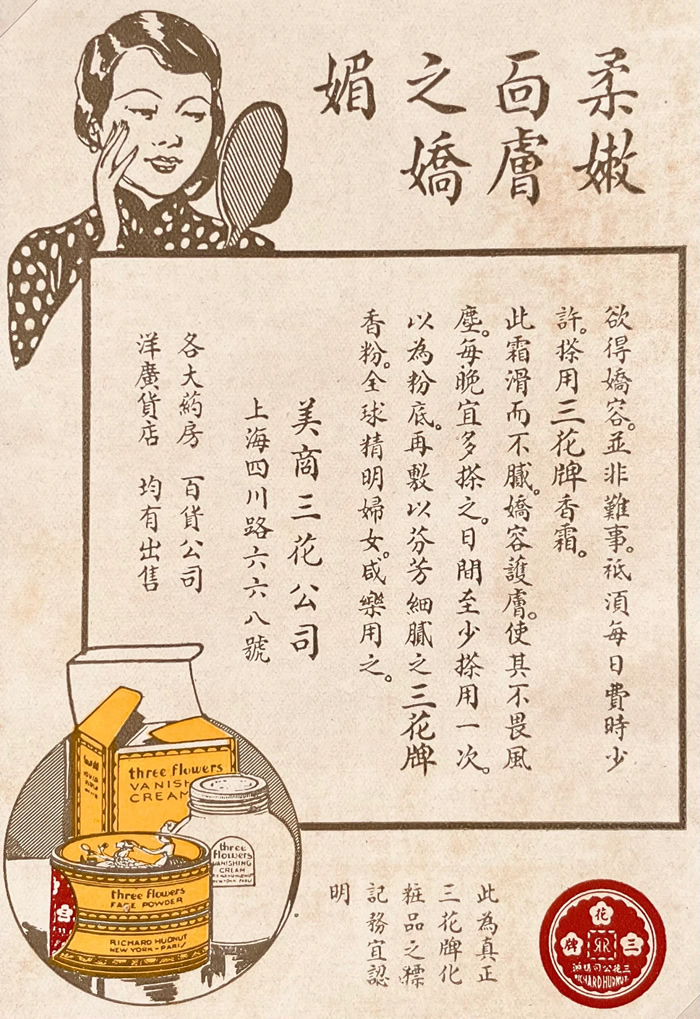 柔嫩
靣膚
之嬌
媚
欲得嬌容。並非難事。祗須每日費時少
許。搽用三花牌香霜。
此霜滑而不膩。嬌容護膚。使其不畏風
塵。每晚宜多搽之。日間至少搽用一次。
以為粉底。再敷以芬芳細膩之三花牌
香粉。全球精明婦女。咸樂用之。
美商三花公司
上海四川路六六八號
各大葯房 百貨公司
洋廣貨店 均有出售
three flowers
VANISHING
CREAM
three
flowers
VANISHING
CREAM
RICHARD HUDNUT
NEW YORK PARIS
three flowers
FACE POWDER
RICHARD HUDNUT
NEW YORK - PARIS
此為真正
三花牌化
粧品之標
記務宜認
明
三花牌
三花公司
RICHARD HUDNUT